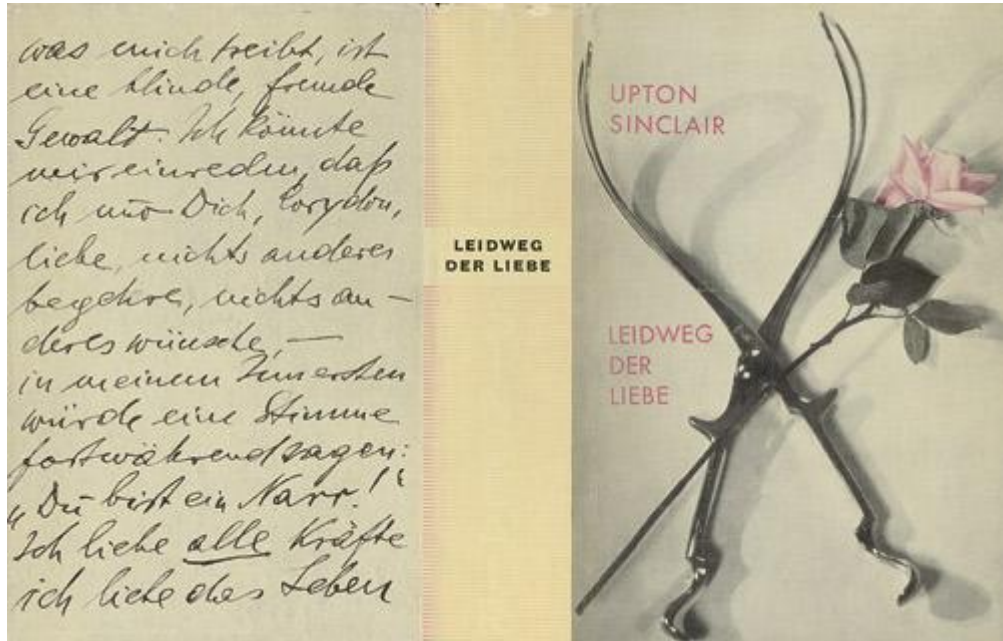 was mich treibt, ist
eine blinde, fremde
Gewalt. Ich könnte
mir einreden, daß
ich nur Dich, Corydon,
liebe, nichts anderes
begehre, nichts an-
deres wünsche, —
in meinem Innersten
würde eine Stimme
fortwährend sagen:
„Du bist ein Narr!“
Ich liebe alle Kräfte
ich liebe das Leben
LEIDWEG
DER LIEBE
UPTON
SINCLAIR
LEIDWEG
DER
LIEBE